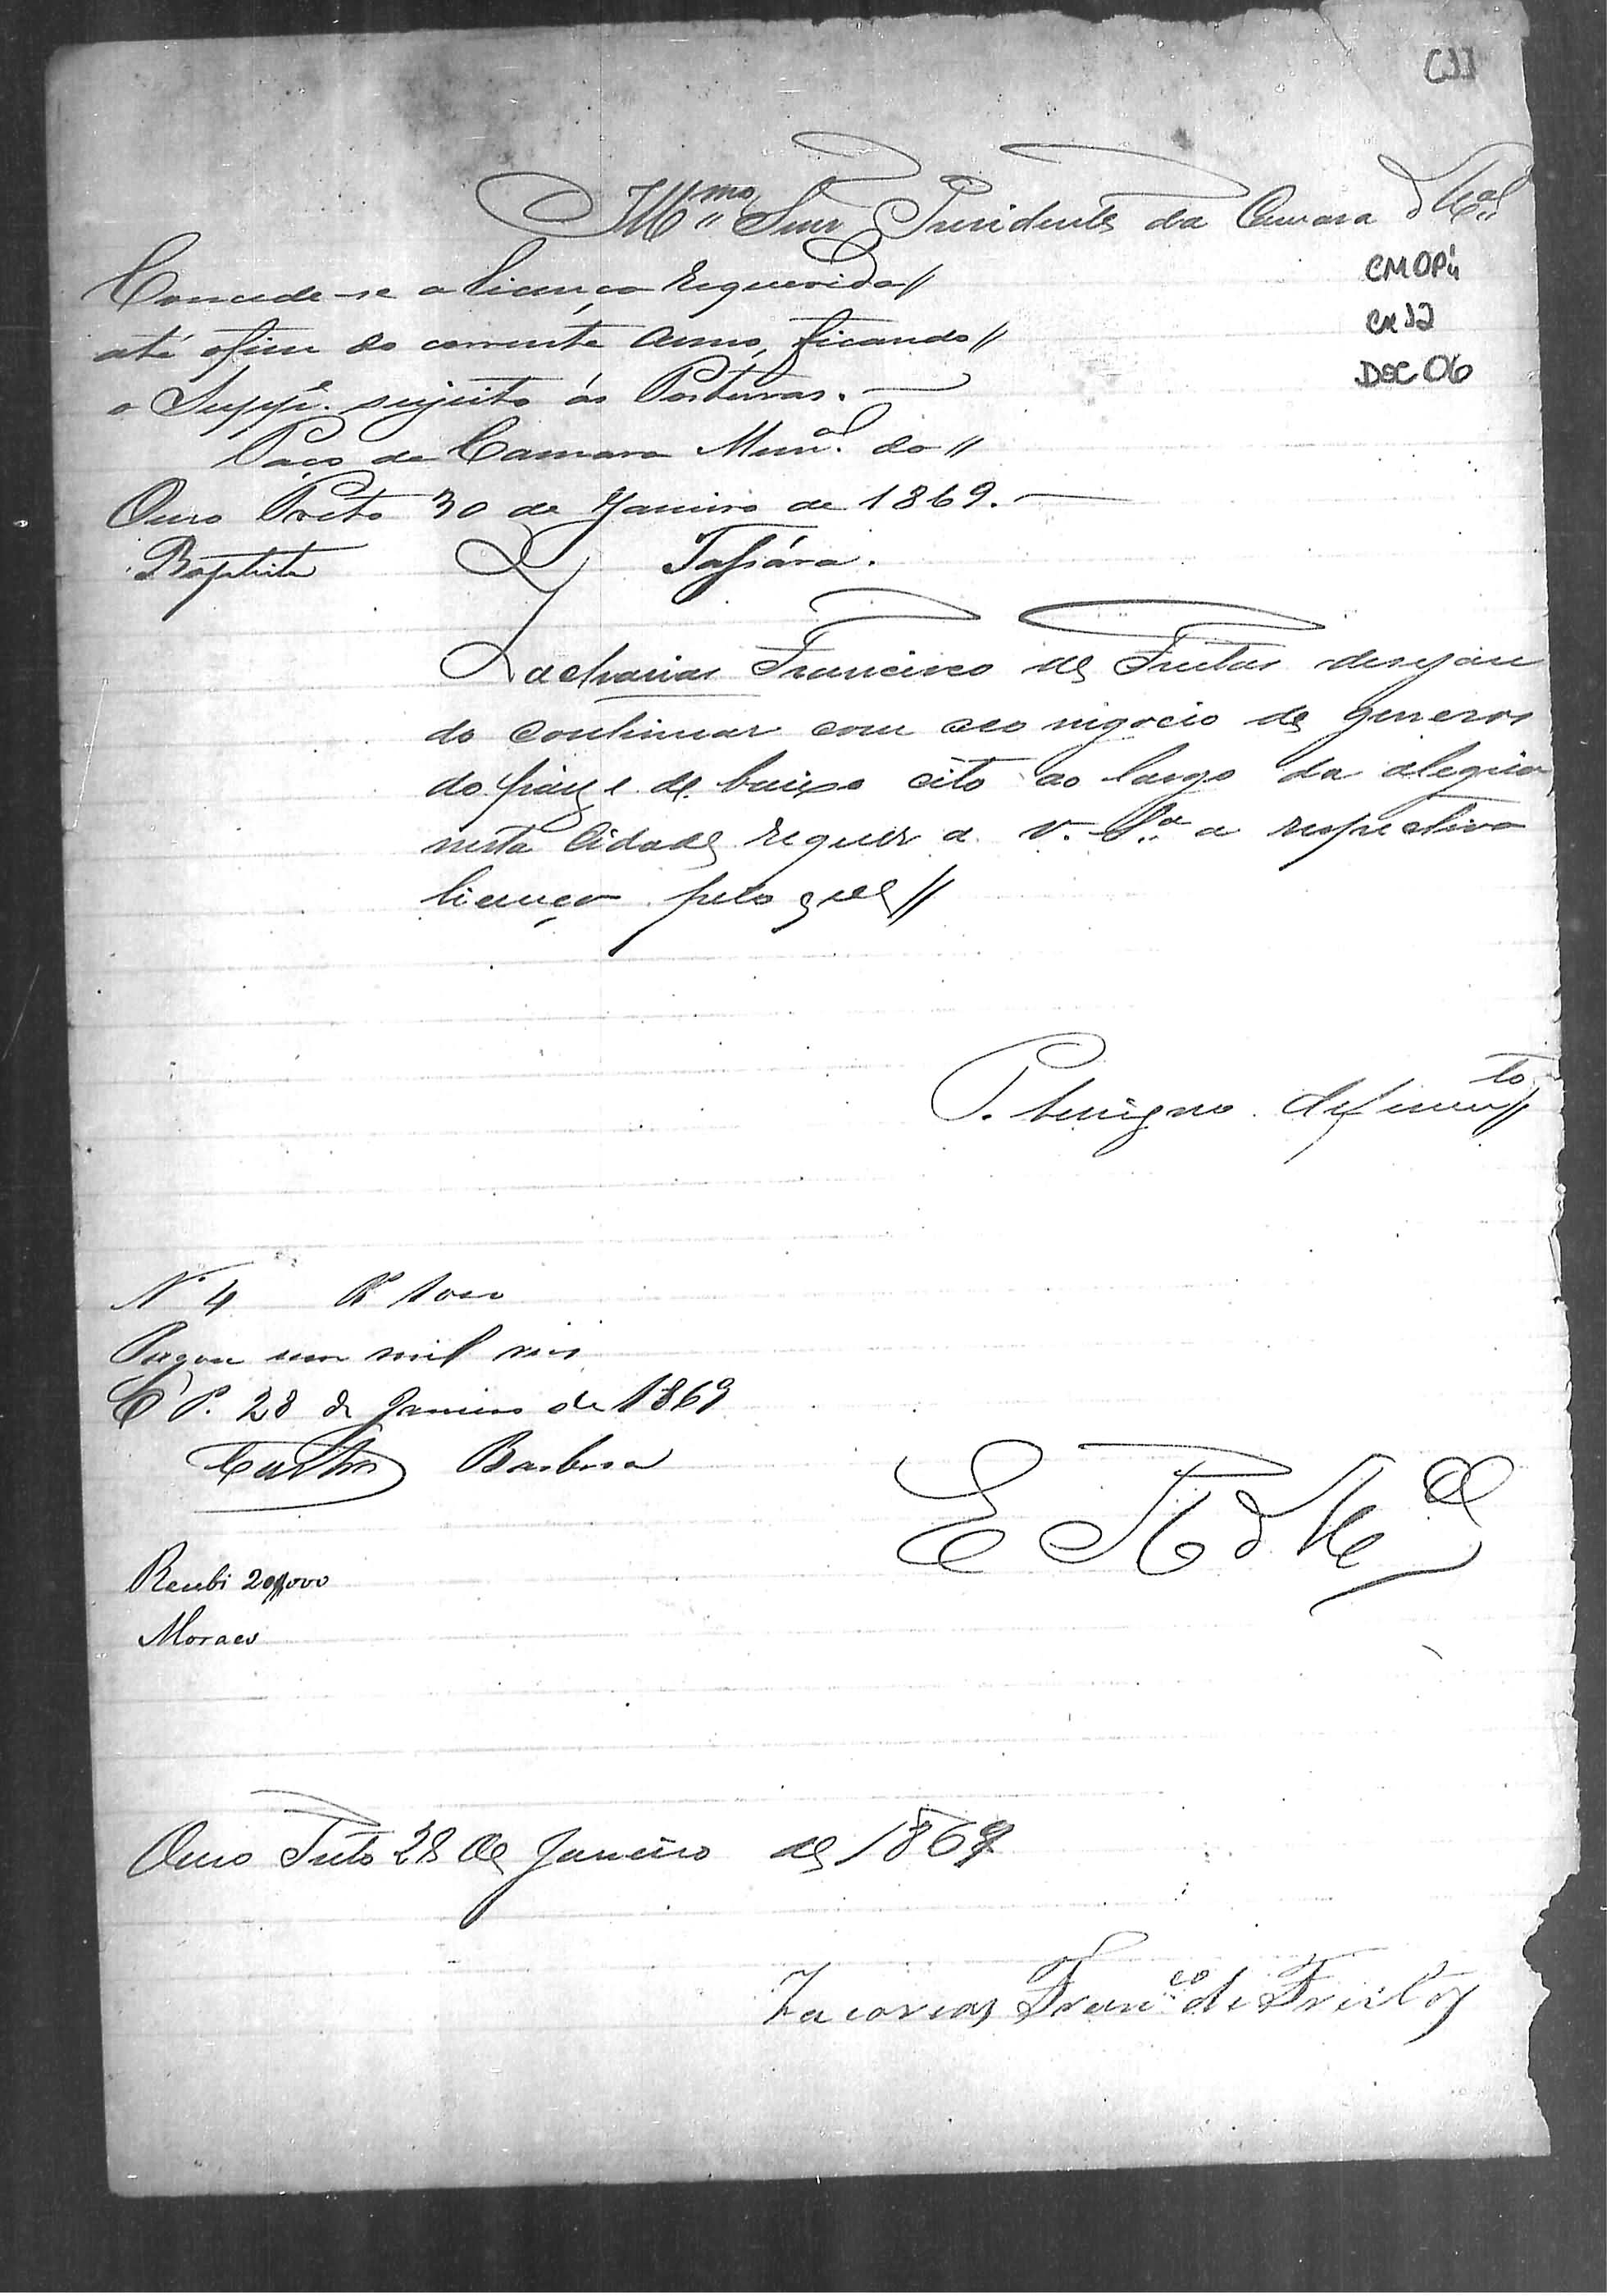 Illmo Snr Presidente da Camara Mal
CMOP
Cx 32
DOC 06
Concede-se a licença requerida//
até ofim do corrente anno, ficando//
o Suppe. sujeito ás Posturas.
Paço da Camara Munal. do//
Ouro Preto 30 de Janeiro de 1869.
Baptista
Zacharias Francisco de Freitas desejan
do continuar com seo nigocio de generos
do paiz e de baixo cito ao largo da alegria
nesta Cidade requer a V. Sa. a respectiva
licença pelo que//
P. benigno defirimto//
N 4 Rs 1000
Pagou um mil reis
O P. 28 de Janeiro de 1869
Castro Barbosa
E R Mce
Recebi 20$000
Moraes
Ouro Preto 28 de Janeiro de 1869
Zacarias Franco de Freitas